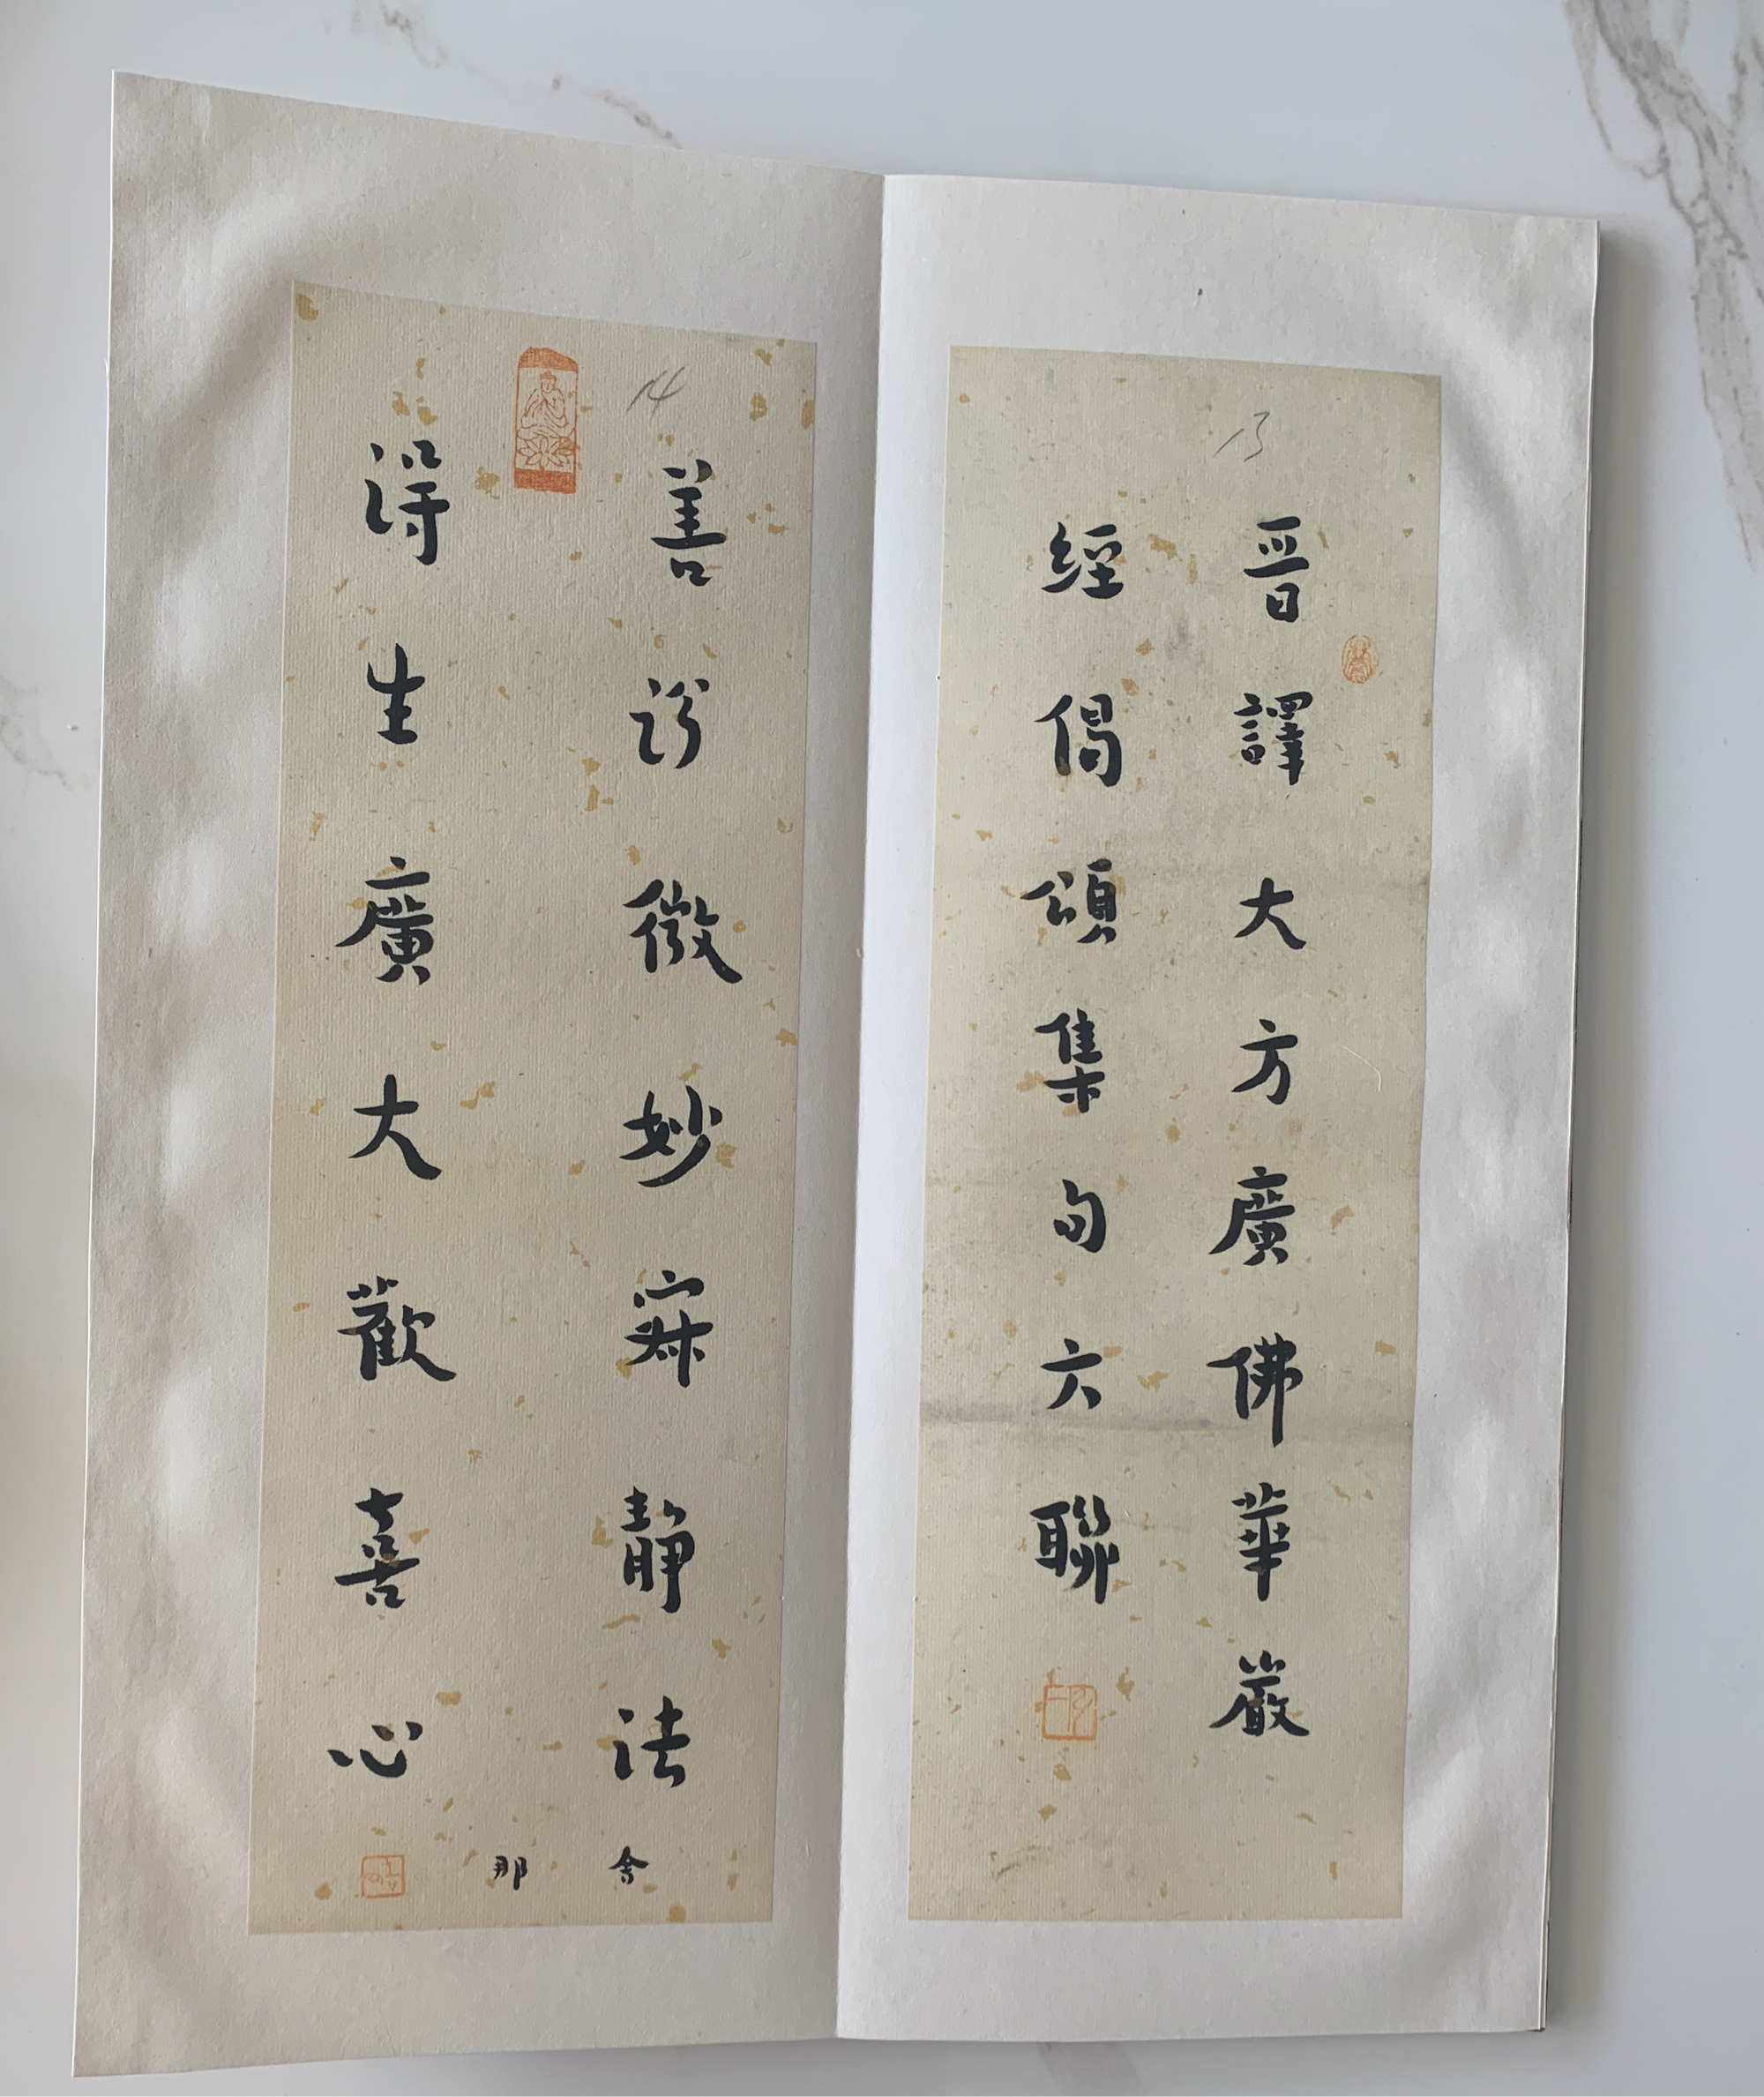 13
晉譯大方廣佛華嚴
經偈頌集句六聯
14
善說微妙寂靜法
得生廣大歡喜心
舍那